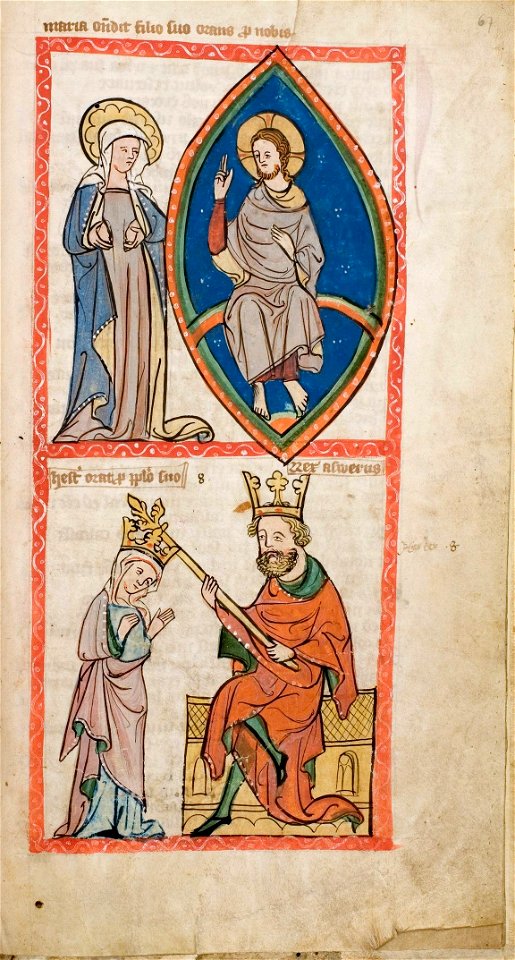 maria on̄dit filio suo orans p̱ nobis.
67
hest' orat p̱ pp̄lo suo
8
Rex aswerus
8